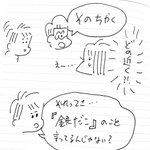 その近く
どの近く?!
え…
それってさ…
『銀だこ』のこと
言ってるんじゃない?